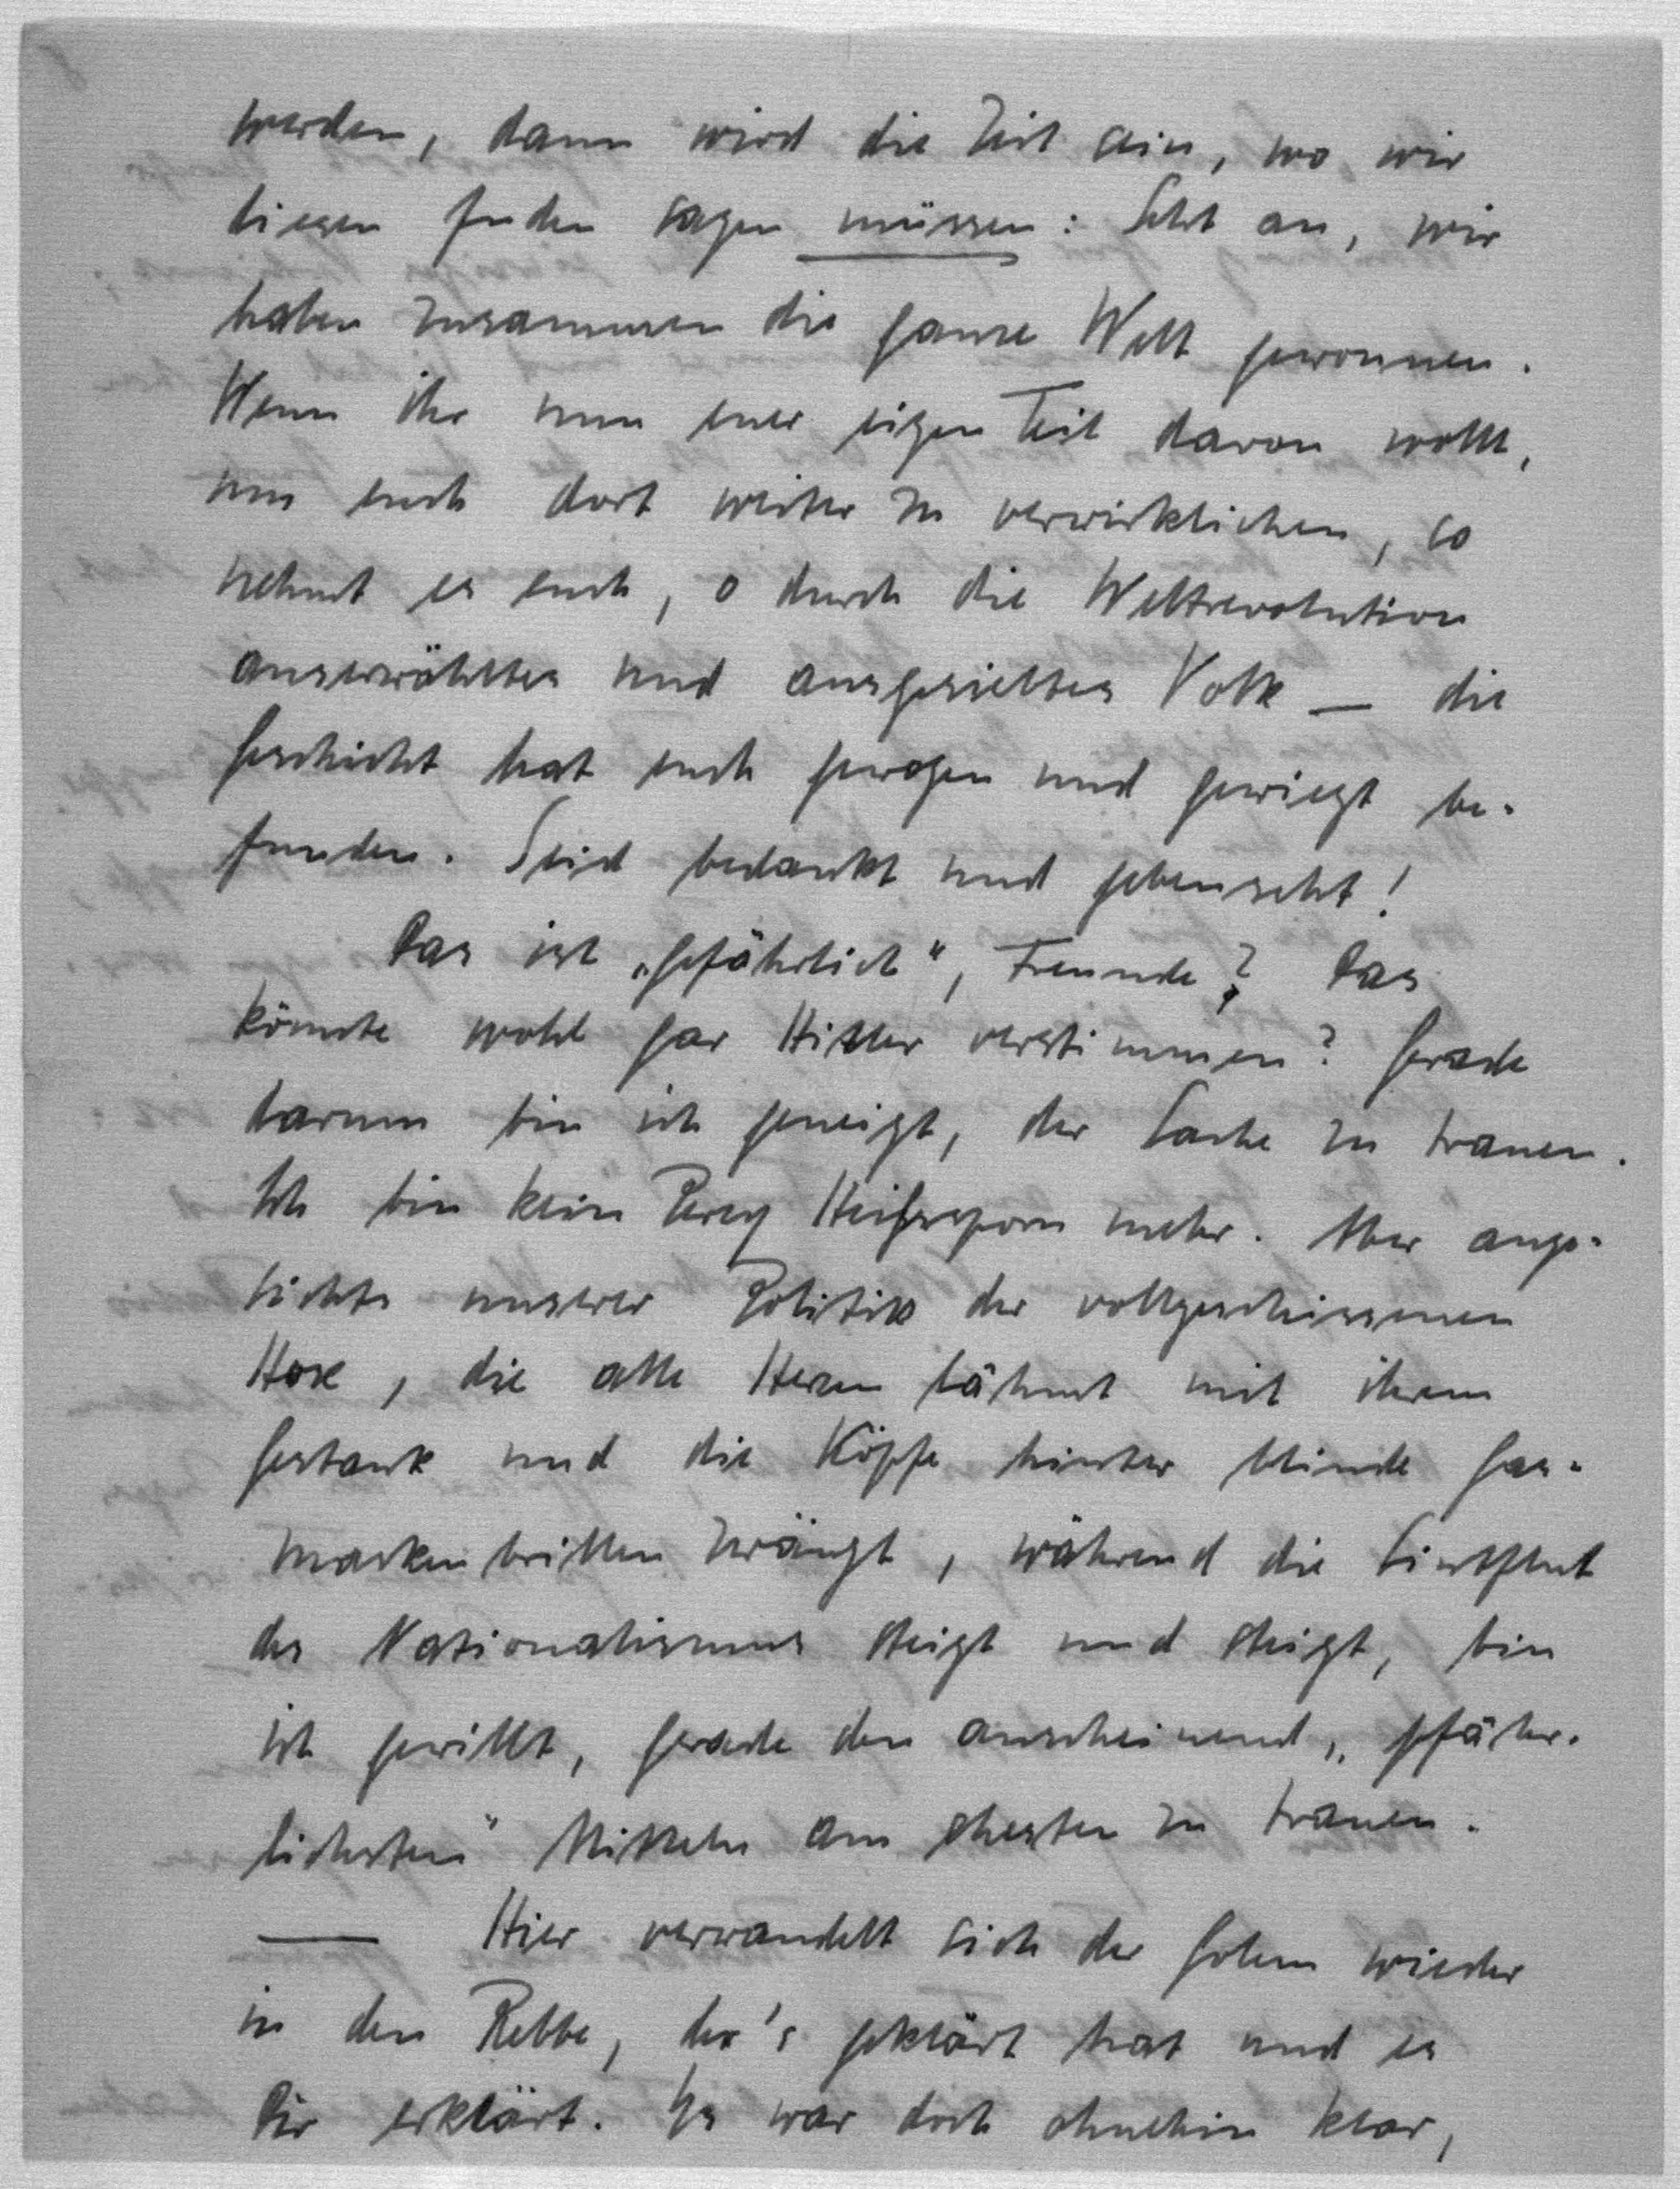 werden, dann wird die Zeit sein, wo wir
diesen Juden sagen müssen: Seht an, wir
haben zusammen die ganze Welt gewonnen.
Wenn ihr nun euer eigen Teil davon wollt,
um euch dort weiter zu verwirklichen, so
nehmt es euch, o durch die Weltrevolution
auserwähltes und ausgesiebtes Volk — die
Geschicht hat euch gewogen und gewiegt be-
funden. Seid bedankt und gebenscht!
Das ist „gefährlich", Freunde? Das
könnte wohl gar Hitler verstimmen? Gerade
darum bin ich geneigt, der Sache zu trauen.
Ich bin kein Percy Heißsporn mehr. Aber ange-
sichts unserer Politik der vollgeschissenen
Hose, die alle Herzen lähmt mit ihrem
Gestank und die Köpfe hinter blinde Gas-
maskenbrillen zwängt, während die Sintflut
des Nationalismus steigt und steigt, bin
ich gewillt, gerade den anscheinend „gefähr-
lichsten" Mitteln am ehesten zu trauen.
— Hier verwandelt sich der Golem wieder
in den Rebbe, der's geklärt hat und es
Dir erklärt. Es war doch ohnehin klar,